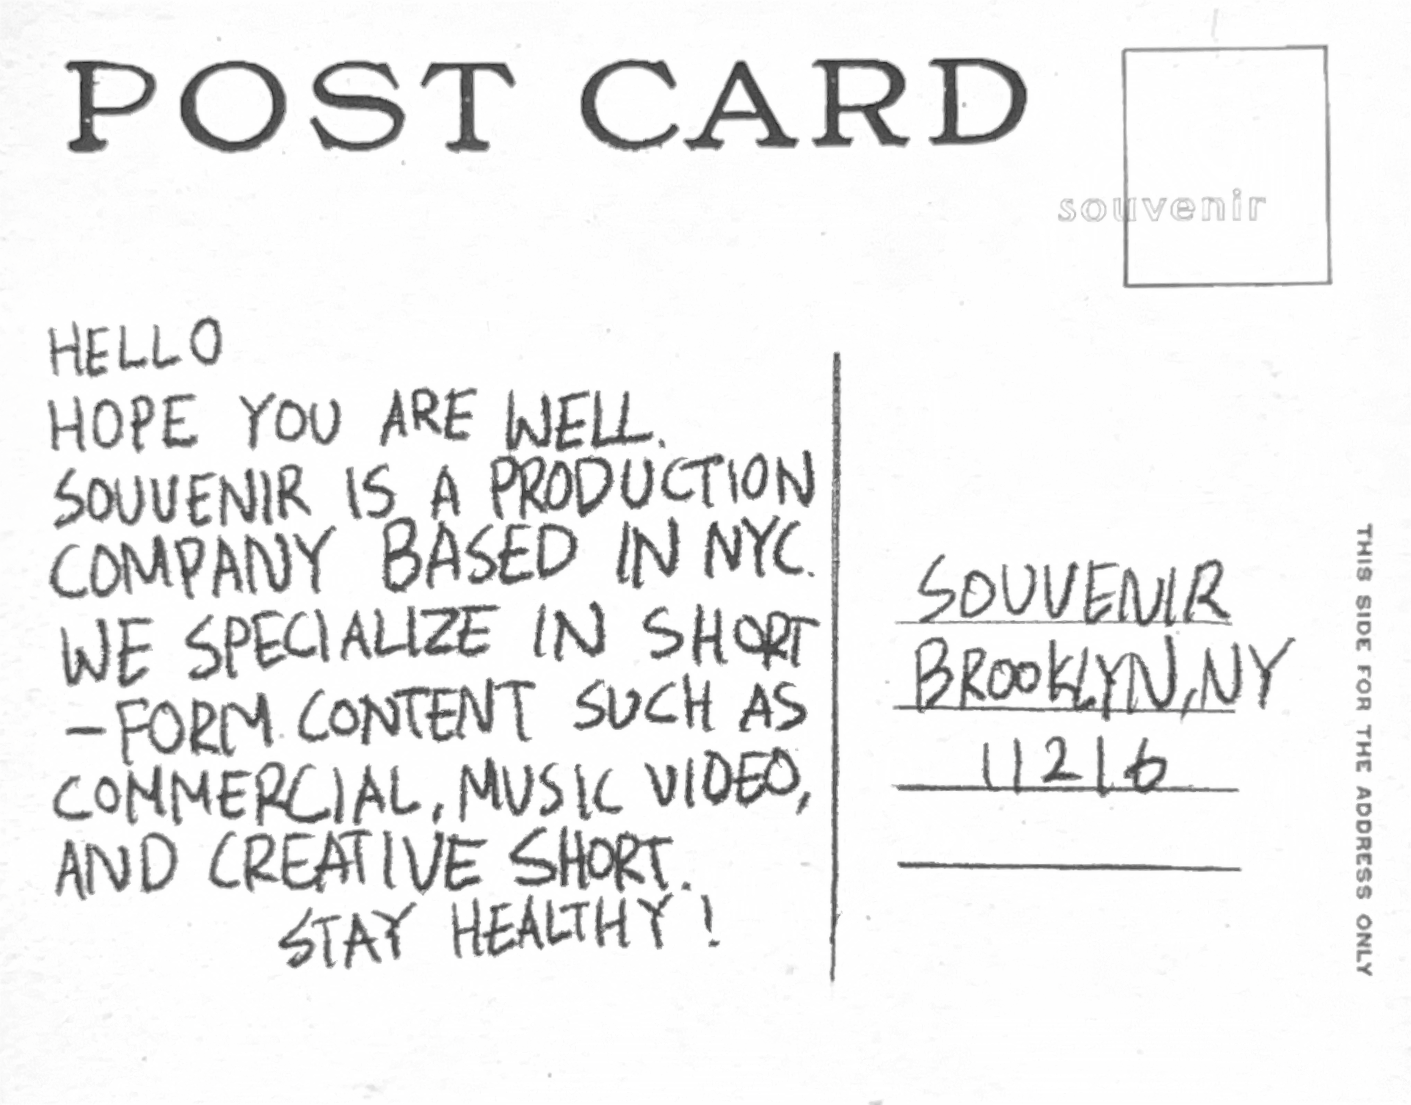 POST CARD
souvenir
HELLO
HOPE YOU ARE WELL.
SOUVENIR IS A PRODUCTION
COMPANY BASED IN NYC.
WE SPECIALIZE IN SHORT
-FORM CONTENT SUCH AS
COMMERCIAL, MUSIC VIDEO,
AND CREATIVE SHORT.
STAY HEALTHY!
SOUVENIR
BROOKLYN, NY
11216
THIS SIDE FOR THE ADDRESS ONLY